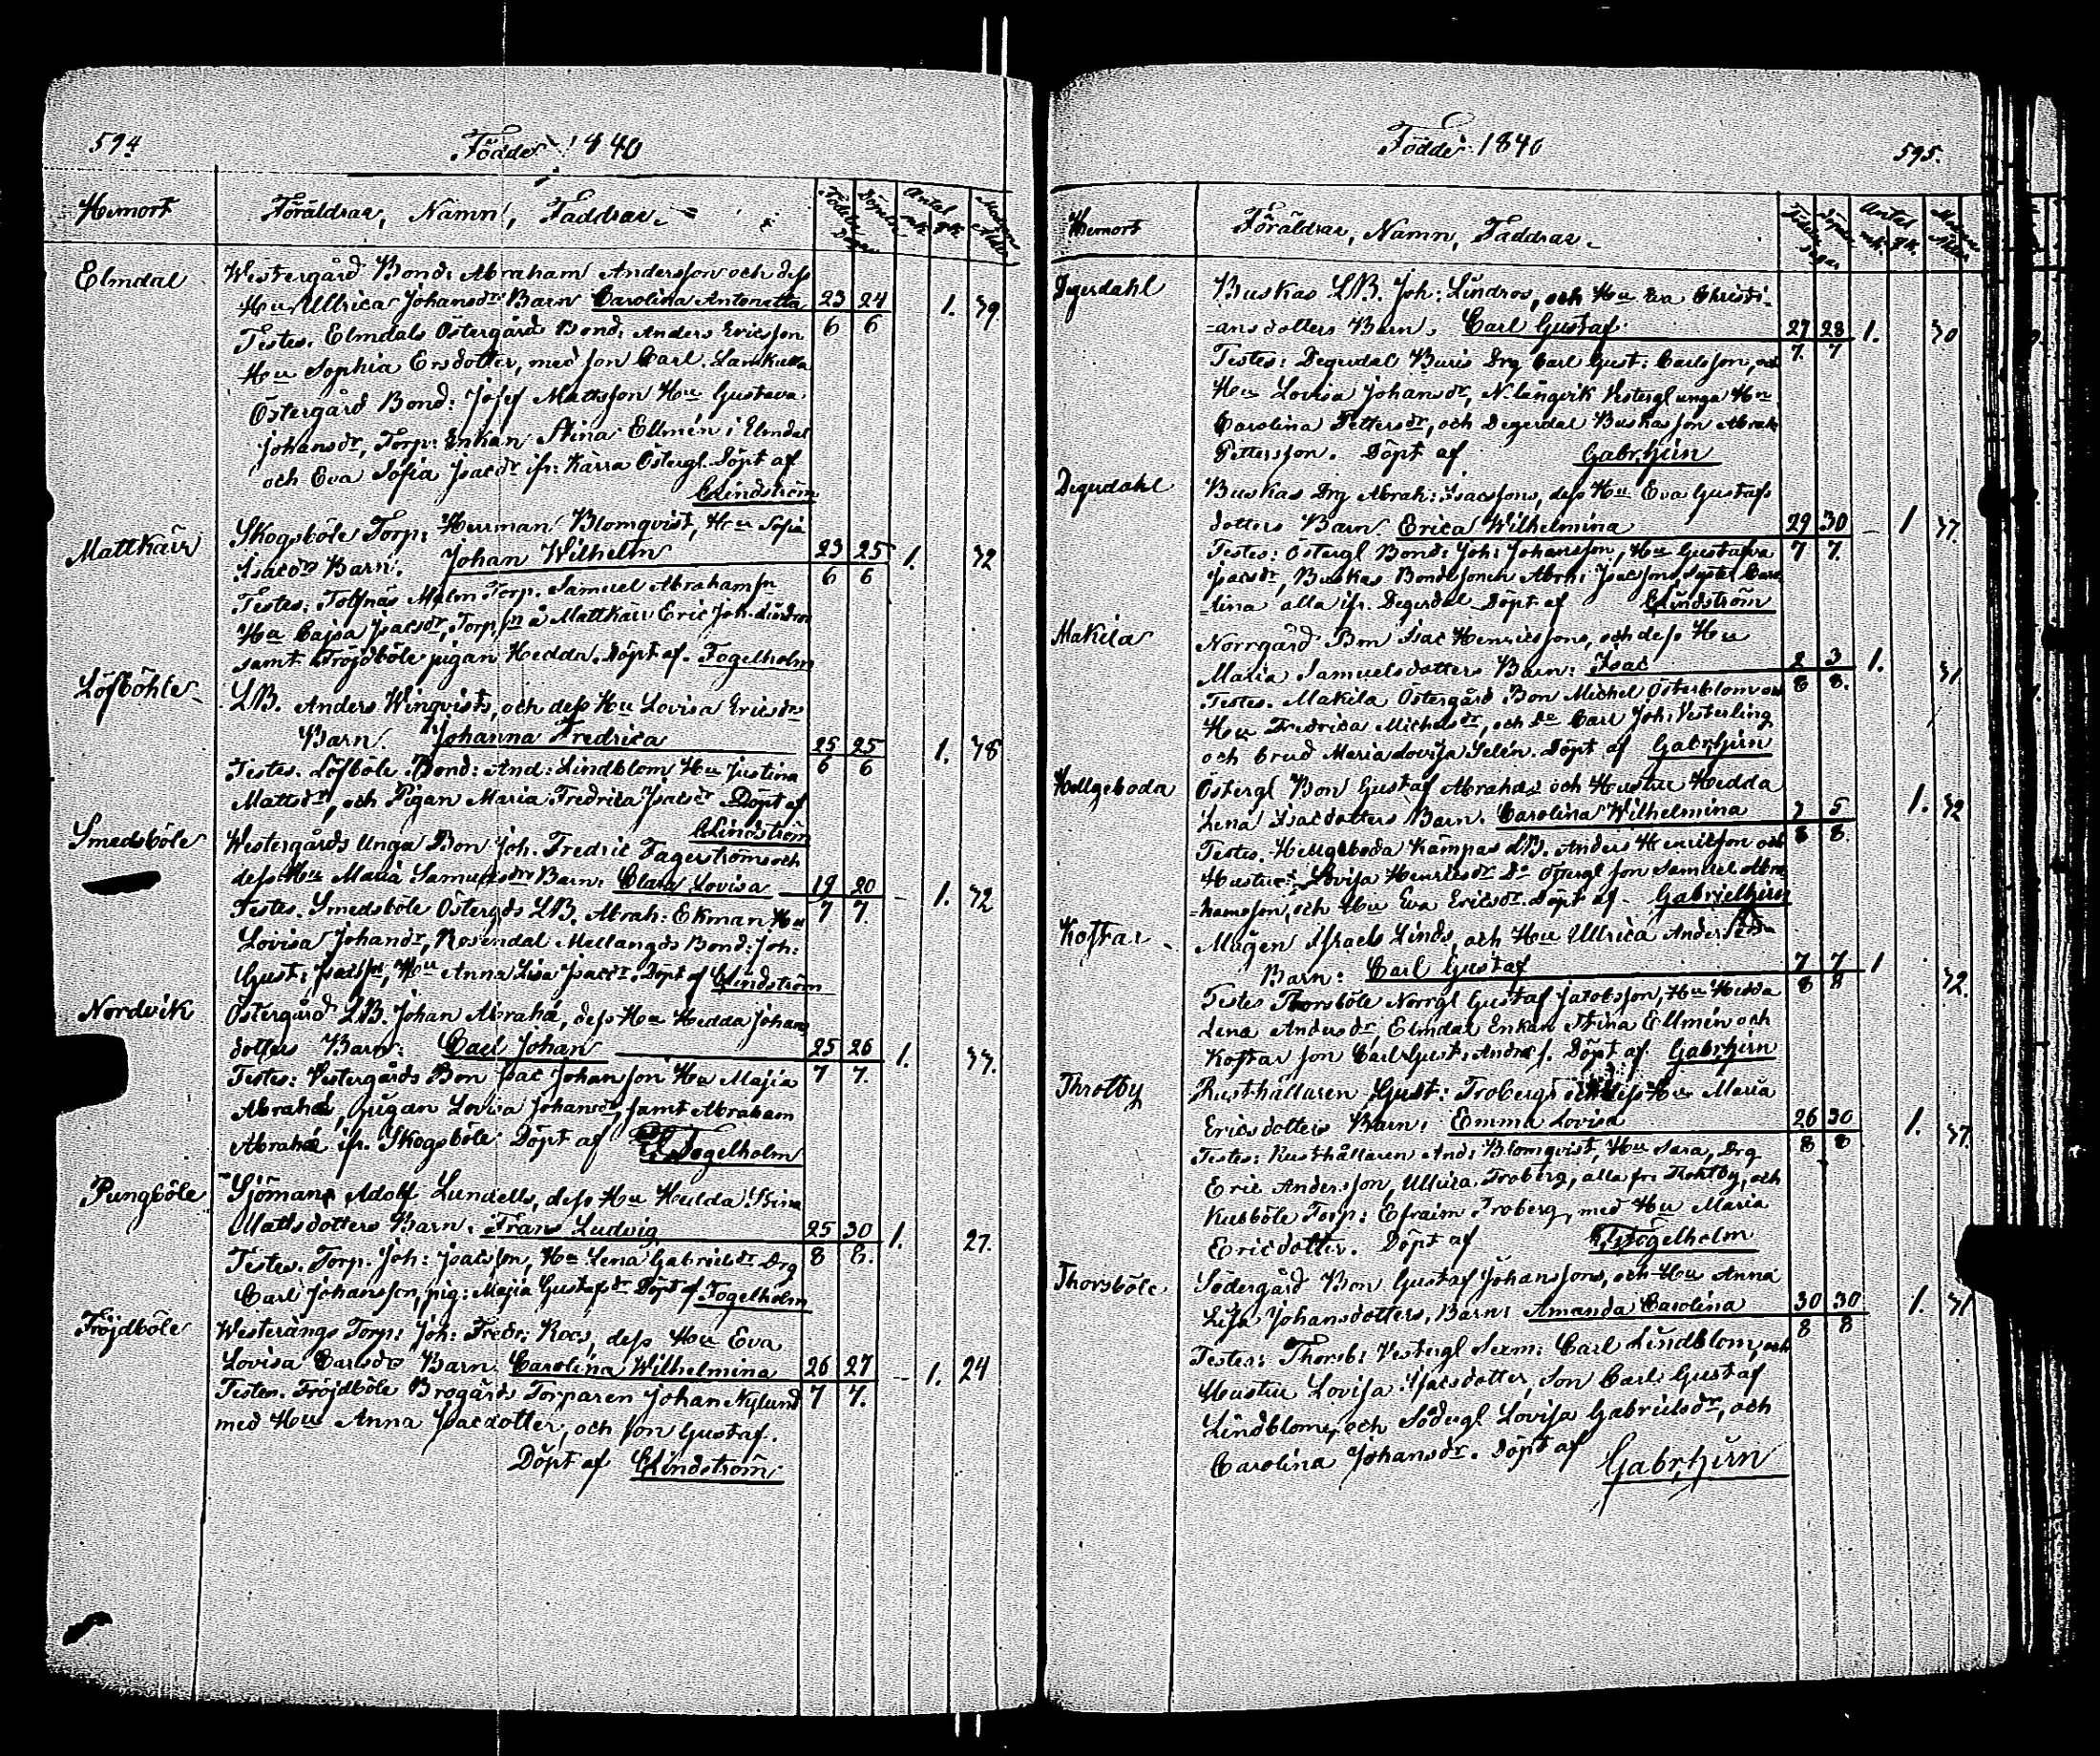 594
Födde 1840
Hemort
Föräldrar, Namn, Faddrar
Födelse Döpelse Dagar
Antal mk. qk.
Modrens Ålder
Elmdal
Westergård Bond: Abraham Andersson och dess
Hu Ullrica Johansdr Barn Carolina Antonetta 23/6 24/6 1. 39.
Testes. Elmdals Östergård Bond: Anders Ericsson
Hu Sophia Ersdotter, med son Carl. Lamkulla
Östergård Bond: Josef Mattsson Hu Gustava
Johansdr, Torp: Enkan Stina Ellmén i Elmdal
och Eva Sofia Isacdr ifr: Kärra Östergl. Döpt af
CLindström
Mattkärr
Skogsböle Torp: Herrman Blomqvist, Hu Sofia
Isacdrs Barn. Johan Wilhelm 23/6 25/6 1. 32
Testes: Tolfnäs Malm Torp. Samuel Abrahamsn
Hu Cajsa Isacsdr, Torp.sn å Mattkärr Eric Joh. Lindros
samt Fröjdböle pigan Hedda. Döpt af. Fogelholm
Löfböhle
LB. Anders Winqvists, och dess Hu Lovisa Ericsdrs
Barn. Johanna Fredrica 25/6 25/6 1. 38
Testes. Löfböle Bond: And: Lindblom Hu Justina
Mattsdr, och Pigan Maria Fredrica Isacsdr Döpt af
CLindström
Smedsböle
Westergårds Unga Bon Joh. Fredric Fagerströms och
dess Hu Maria Samuelsdrs Barn: Clara Lovisa 19/7 20/7. 1. 32
Testes. Smedsböle Östergds LB. Abrah: Ekman Hu
Lovisa Johansdr, Rosendal Mellangds Bond: Joh:
Gust: Isacsson, Hu Anna Lisa Isacsdr. Döpt af CLindström
Nordvik
Östergård LB. Johan Abrahà, dess Hu Hedda Johans
dotters Barn: Carl Johan 25/7 26/7. 1. 37.
Testes: Vestergårds Bon Isac Johansson Hu Majia
Abrahà, Pigan Lovisa Johansdr, samt Abraham
Abrahà ifr. Skogsböle Döpt af Fogelholm
Pungböle
Sjöman Adolf Lundells, dess Hu Hedda Stina
Mattsdotters Barn. Frans Ludvig 25/8 30/8. 1. 27.
Testes. Torp. Joh: Isacsson, Hu Lena Gabrielsdr Drg
Carl Johansson, pig: Majia Gustafsdr Döpt af Fogelholm
Fröjdböle
Westerängs Torp: Joh: Fredr: Roos, dess Hu Eva
Lovisa Carlsdrs Barn. Carolina Wilhelmina 26/7 27/7. 1. 24
Testes. Fröjdböle Brogårds Torparen Johan Nylund
med Hu Anna Isacdotter, och son Gustaf.
Döpt af CLindström
Födde 1840
595.
Hemort
Föräldrar, Namn, Faddrar
Födelse Döpelse Dagar
Antal mk. qk.
Modrens Ålder
Degerdahl
Buskas LB. Joh: Lindros, och Hu Eva Christi-
-ansdotters Barn. Carl Gustaf 27/7. 28/7 1. 30
Testes: Degerdal Buris Drg Carl Gust: Carlsson, och
Hu Lovisa Johansdr, N. långvik Vestergl unga Hu
Carolina Pettersdr, och Degerdal Buskas son Abrah
Pettersson. Döpt af Gabr. Hjirn
Degerdahl
Buskas Drg Abrah: Isacssons, dess Hu Eva Gustafs
dotters Barn. Erica Wilhelmina 29/7 30/7. 1 37.
Testes: Östergl Bond: Joh: Johansson, Hu Gustafva
Isacsdr, Buskas Bondesonen Abrh: Isacsson, Syster Caro
-lina alla ifr. Degerdal Döpt af CLindström
Makila
Norrgård Bon Isac Henricssons, och dess Hu
Maria Samuelsdotters Barn: Isac 2/8 3/8. 1. 31
Testes. Makila Östergård Bon Michel Österblom och
Hu Fredrica Michelsdr, och Do Carl Joh: Vesterling
och brud Maria Lovisa Selén. Döpt af Gabr. Hjirn
Hellgeboda
Östergl Bon Gustaf Abrahàs och Hustru Hedda
Lena Isacdotters Barn. Carolina Wilhelmina 3/8 5/8. 1. 32
Testes. Hellgeboda Kämpas LB. Anders Henricsson och
Hustru Lovisa Henricsdr Do Östergl son Samuel Abra
-hamsson, och Hu Eva Ericsdr. Döpt af Gabriel Hjirn
Kostar
Mågen Israels Linds, och Hu Ullrica Anders
Barn: Carl Gustaf 7/8 7/8 1 32.
Testes Thorsböle Norrgl Gustaf Jacobsson, Hu Hedda
Lena Andersdr, Elmdal Enkan Stina Ellmén och
Kostar son Carl Gust: Anders s. Döpt af Gabr. Hjirn
Throlby
Rusthållaren Gust: Trobergs och dess Hu Maria
Ericsdotters Barn: Emma Lovisa 26/8 30/8 1. 37.
Testes: Rusthållaren And: Blomqvist, Hu Sara, Drg
Eric Andersson, Ullrica Troberg, alla fr: Throlby, och
Kusböle Torp: Efraim Troberg, med Hu Maria
Ericdotter. Döpt af Fogelholm
Thorsböle
Södergård Bon Gustaf Johanssons, och Hu Anna
Lisa Johansdotters, Barn: Amanda Carolina 30/8 30/8 1. 31
Testes: Thorsb: Vestergl Sexm: Carl Lindblom och
Hustru Lovisa Isacsdotter, Son Carl Gustaf
Lindblom, och Södergl Lovisa Gabrielsdr, och
Carolina Johansdr. Döpt af
Gabr. Hjirn